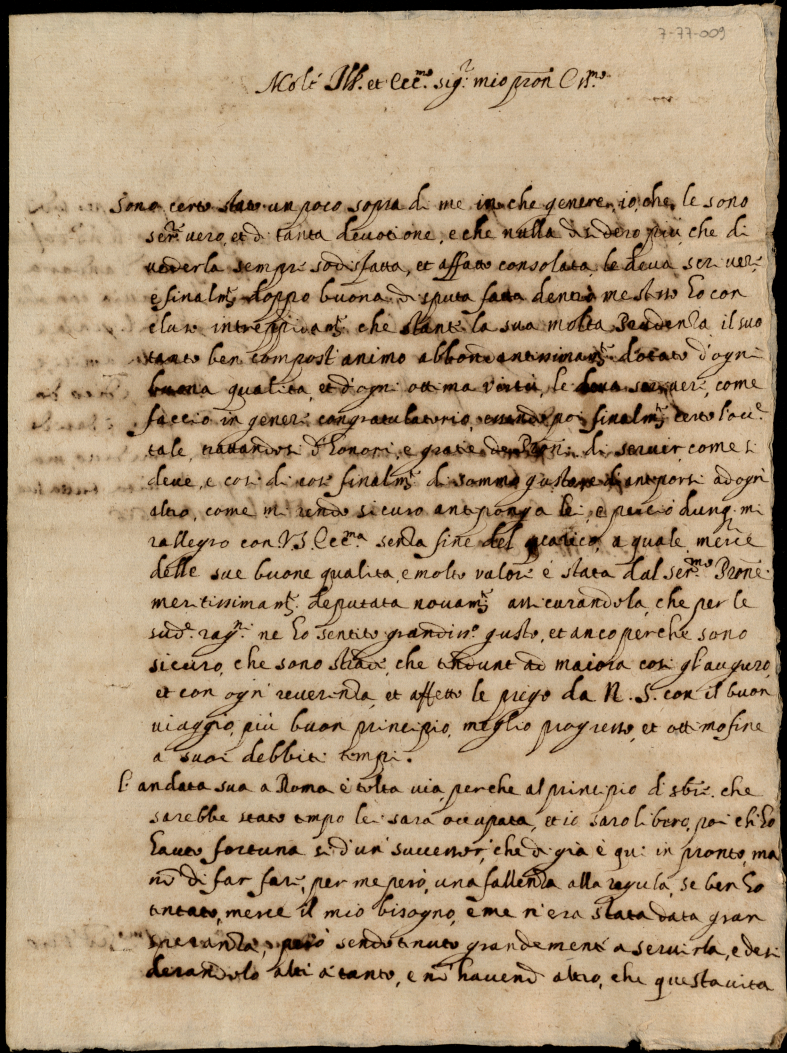 7-77-009
Molt' Ill. et Ecc.mo sig.r mio pron Oss.mo
Sono certo stato un poco sopra di me in che genere, io, che le sono
ser.re vero, et di tanta devotione, e che nulla desidero più, che di
vederla sempre sodisfatta, et affatto consolata le deva scrivere,
e finalm.te doppo buona disputa fatta dentro me stesso ho con
cluso intrepidam.te che stante la sua molta Prudenza, il suo
tanto ben compost' animo abbondantissimam.te dotato d'ogni
buona qualita, et d'ogni ottima virtù, le deva scrivere, come
faccio in genere congratulatorio, essendo poi finalm.te certo l'occ.e
tale, trattandosi d'honori, e gratie de Pron.i di servir, come si
deve, e così di cose finalm.te di sommo gusto di anteporsi ad ogn'
altro, come mi rendo sicuro anteponga lei, e perciò dunq. mi
rallegro con V.S. Ecc.ma senza fine del carico, a quale, mercè
delle sue buone qualita, e molto valore è stata dal ser.mo Prone
meritissimam.te deputata novam.te assicurandola, che per le
sud.e ragni ne ho sentito grandiss.o gusto, et anco perche sono
sicuro, che sono strade, che tendunt ad maiora così gl'auguro,
et con ogni reverenza, et affetto le prego da N. S. con il buon
viaggio, più buon principio, meglio progresso, et ottimo fine
a suoi debbiti tempi.
L'andata sua a Roma è tolta via, perche al principio di 8bre. che
sarebbe stato tempo lei sarà occupata, et io sarò libero, poi ch'ho
hauto fortuna d'un successor, che di già è qui in pronto, ma
nò di far fare, per me però, una fallenza alla regula, se ben ho
tentato, mercè il mio bisogno, e me n'era stata data gran
speranza, però sendo tenuto grandemente a servirla, e desi
derandolo altre tanto, e nò havend' altro, che questa vita